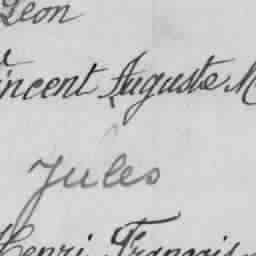 Léon
Vincent Auguste M
Jules
Henri François